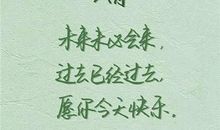 未来未必会来，
过去已经过去，
愿你今天快乐。